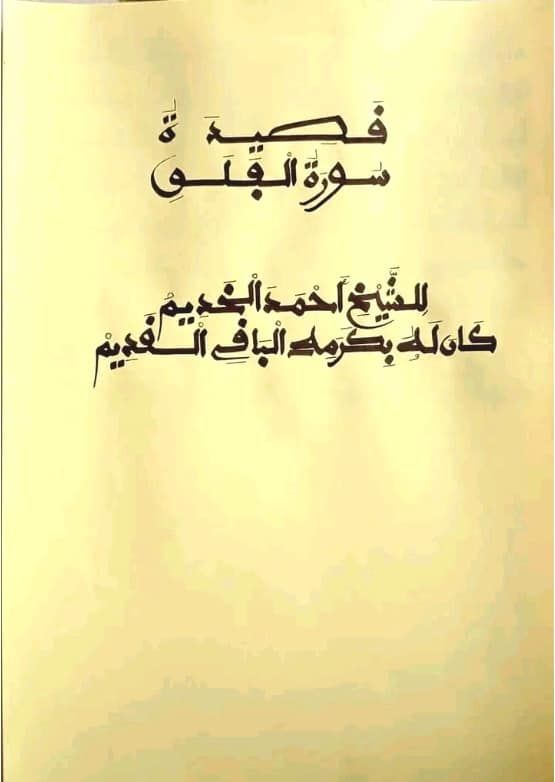 قصيدة
سورة الفلق
للشيخ أحمد الخديم
كان له بكرمه الباقي القديم